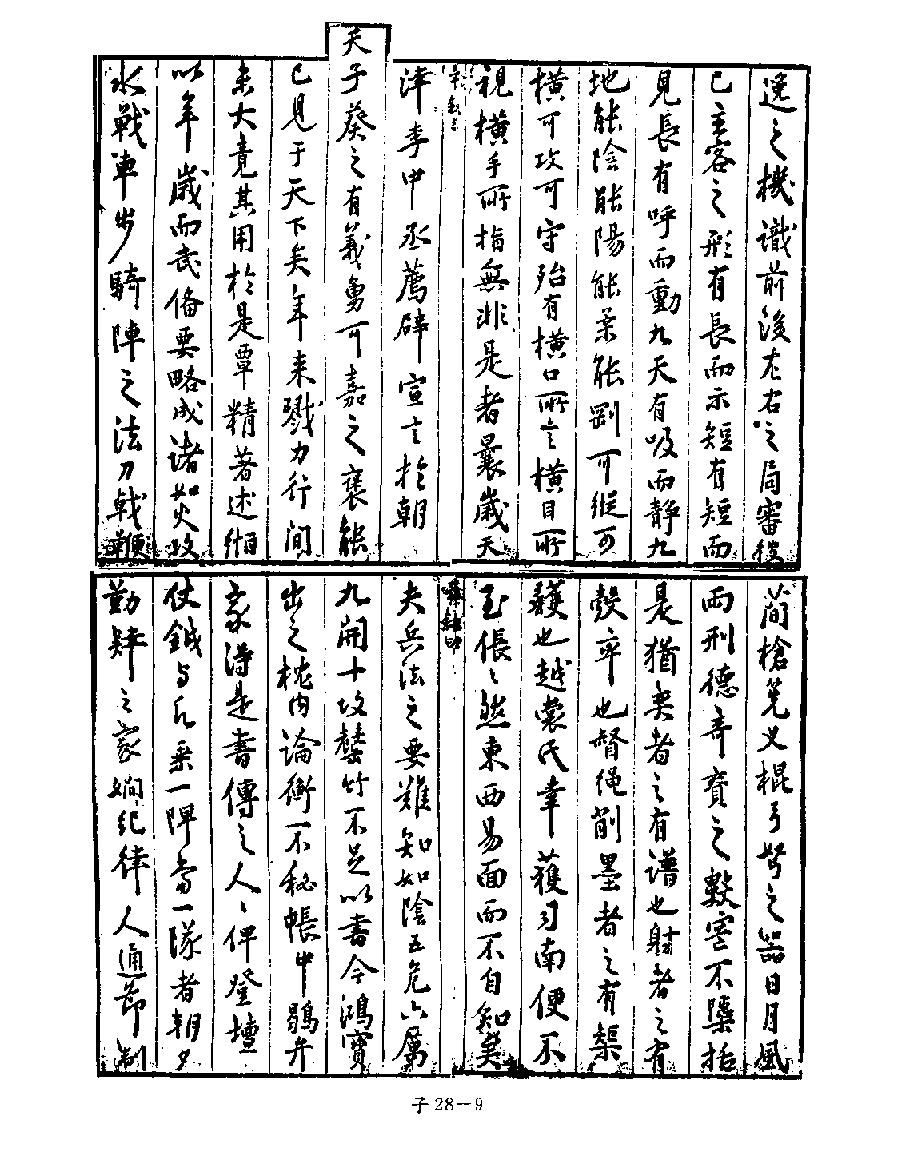 逸之機識前後左右之局審彼
已主客之形有長而示短有短而
見長有呼而動九天有吸而靜九
地能陰能陽能柔能剛可縱可
橫可攻可守殆有橫口所言橫目所
視橫手所指無非是者曩歲天
津李中丞薦辟宣言於朝
天子葵之有義勇可嘉之褒能
已見于天下矣年來戮力行間
未大竟其用於是覃精著述緗
以年歲而武備要略成諸如火攻
水戰車步騎陣之法刀戟鞭
簡槍筅叉棍弓弩之器日月風
雨刑德奇賁之數寔不櫽括
是猶奕者之有譜也射者之有
彀率也督繩削墨者之有榘
矱也越裳氏幸獲司南便不
至倀〻然東西易面而不自知矣
夫兵法之要難知如陰五危六厲
九開十攻罄竹不足以書今鴻寶
出之枕內論衡不秘帳中鶡弁
家得是書傳之人〻俾登壇
仗鉞与凡乘一障當一隊者朝夕
勤肄之家嫻紀律人通節制
子28—9